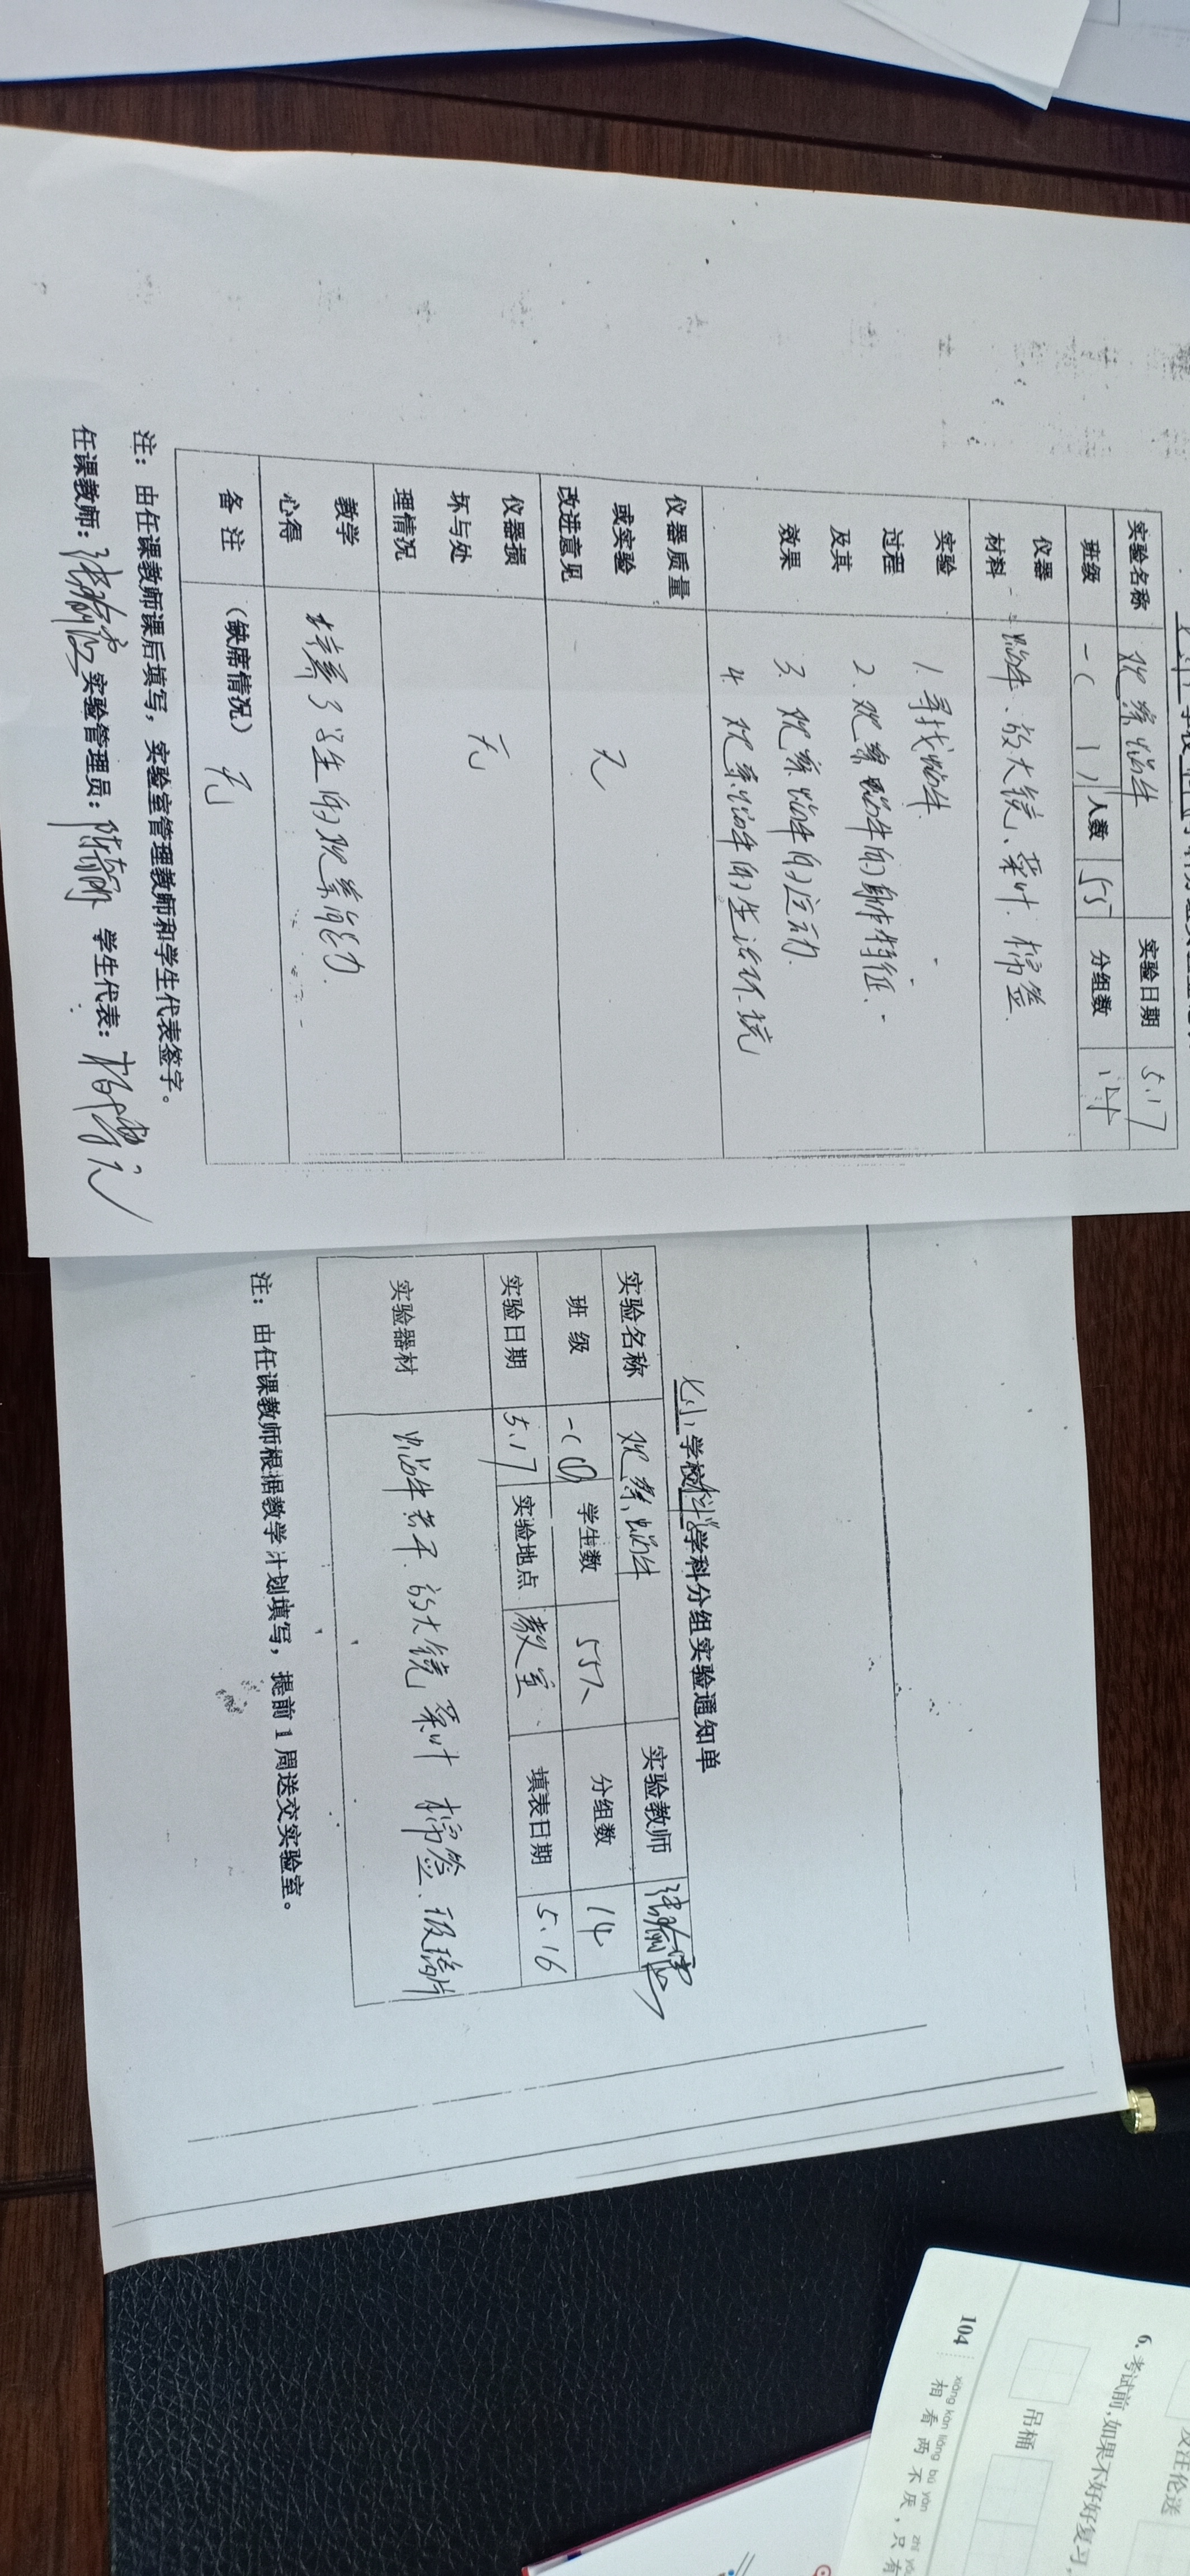 实验名称 观察蜗牛 实验日期 5.17
班级 一(1) 人数 55 分组数 14
仪器材料 蜗牛、放大镜、菜叶、棉签
实验过程及其效果 1. 寻找蜗牛
2. 观察蜗牛的身体特征.
3. 观察蜗牛的运动.
4. 观察蜗牛的生活环境
仪器质量或实验改进意见 无
仪器损坏与处理情况 无
教学心得 培养了学生的观察能力.
备注 (缺席情况) 无
注：由任课教师课后填写，实验室管理教师和学生代表签字。
任课教师： 实验管理员： 学生代表：
七小学校科学学科分组实验通知单
实验名称 观察蜗牛 实验教师
班级 一(1) 学生数 55人 分组数 14
实验日期 5.17 实验地点 教室 填表日期 5.16
实验器材 蜗牛若干、放大镜 菜叶 棉签、玻璃片
注：由任课教师根据教学计划填写，提前1周送交实验室。
6. 考试前，如果不好好复习
吊桶
104
xiāng kàn liǎng bú yàn
相看两不厌，只有